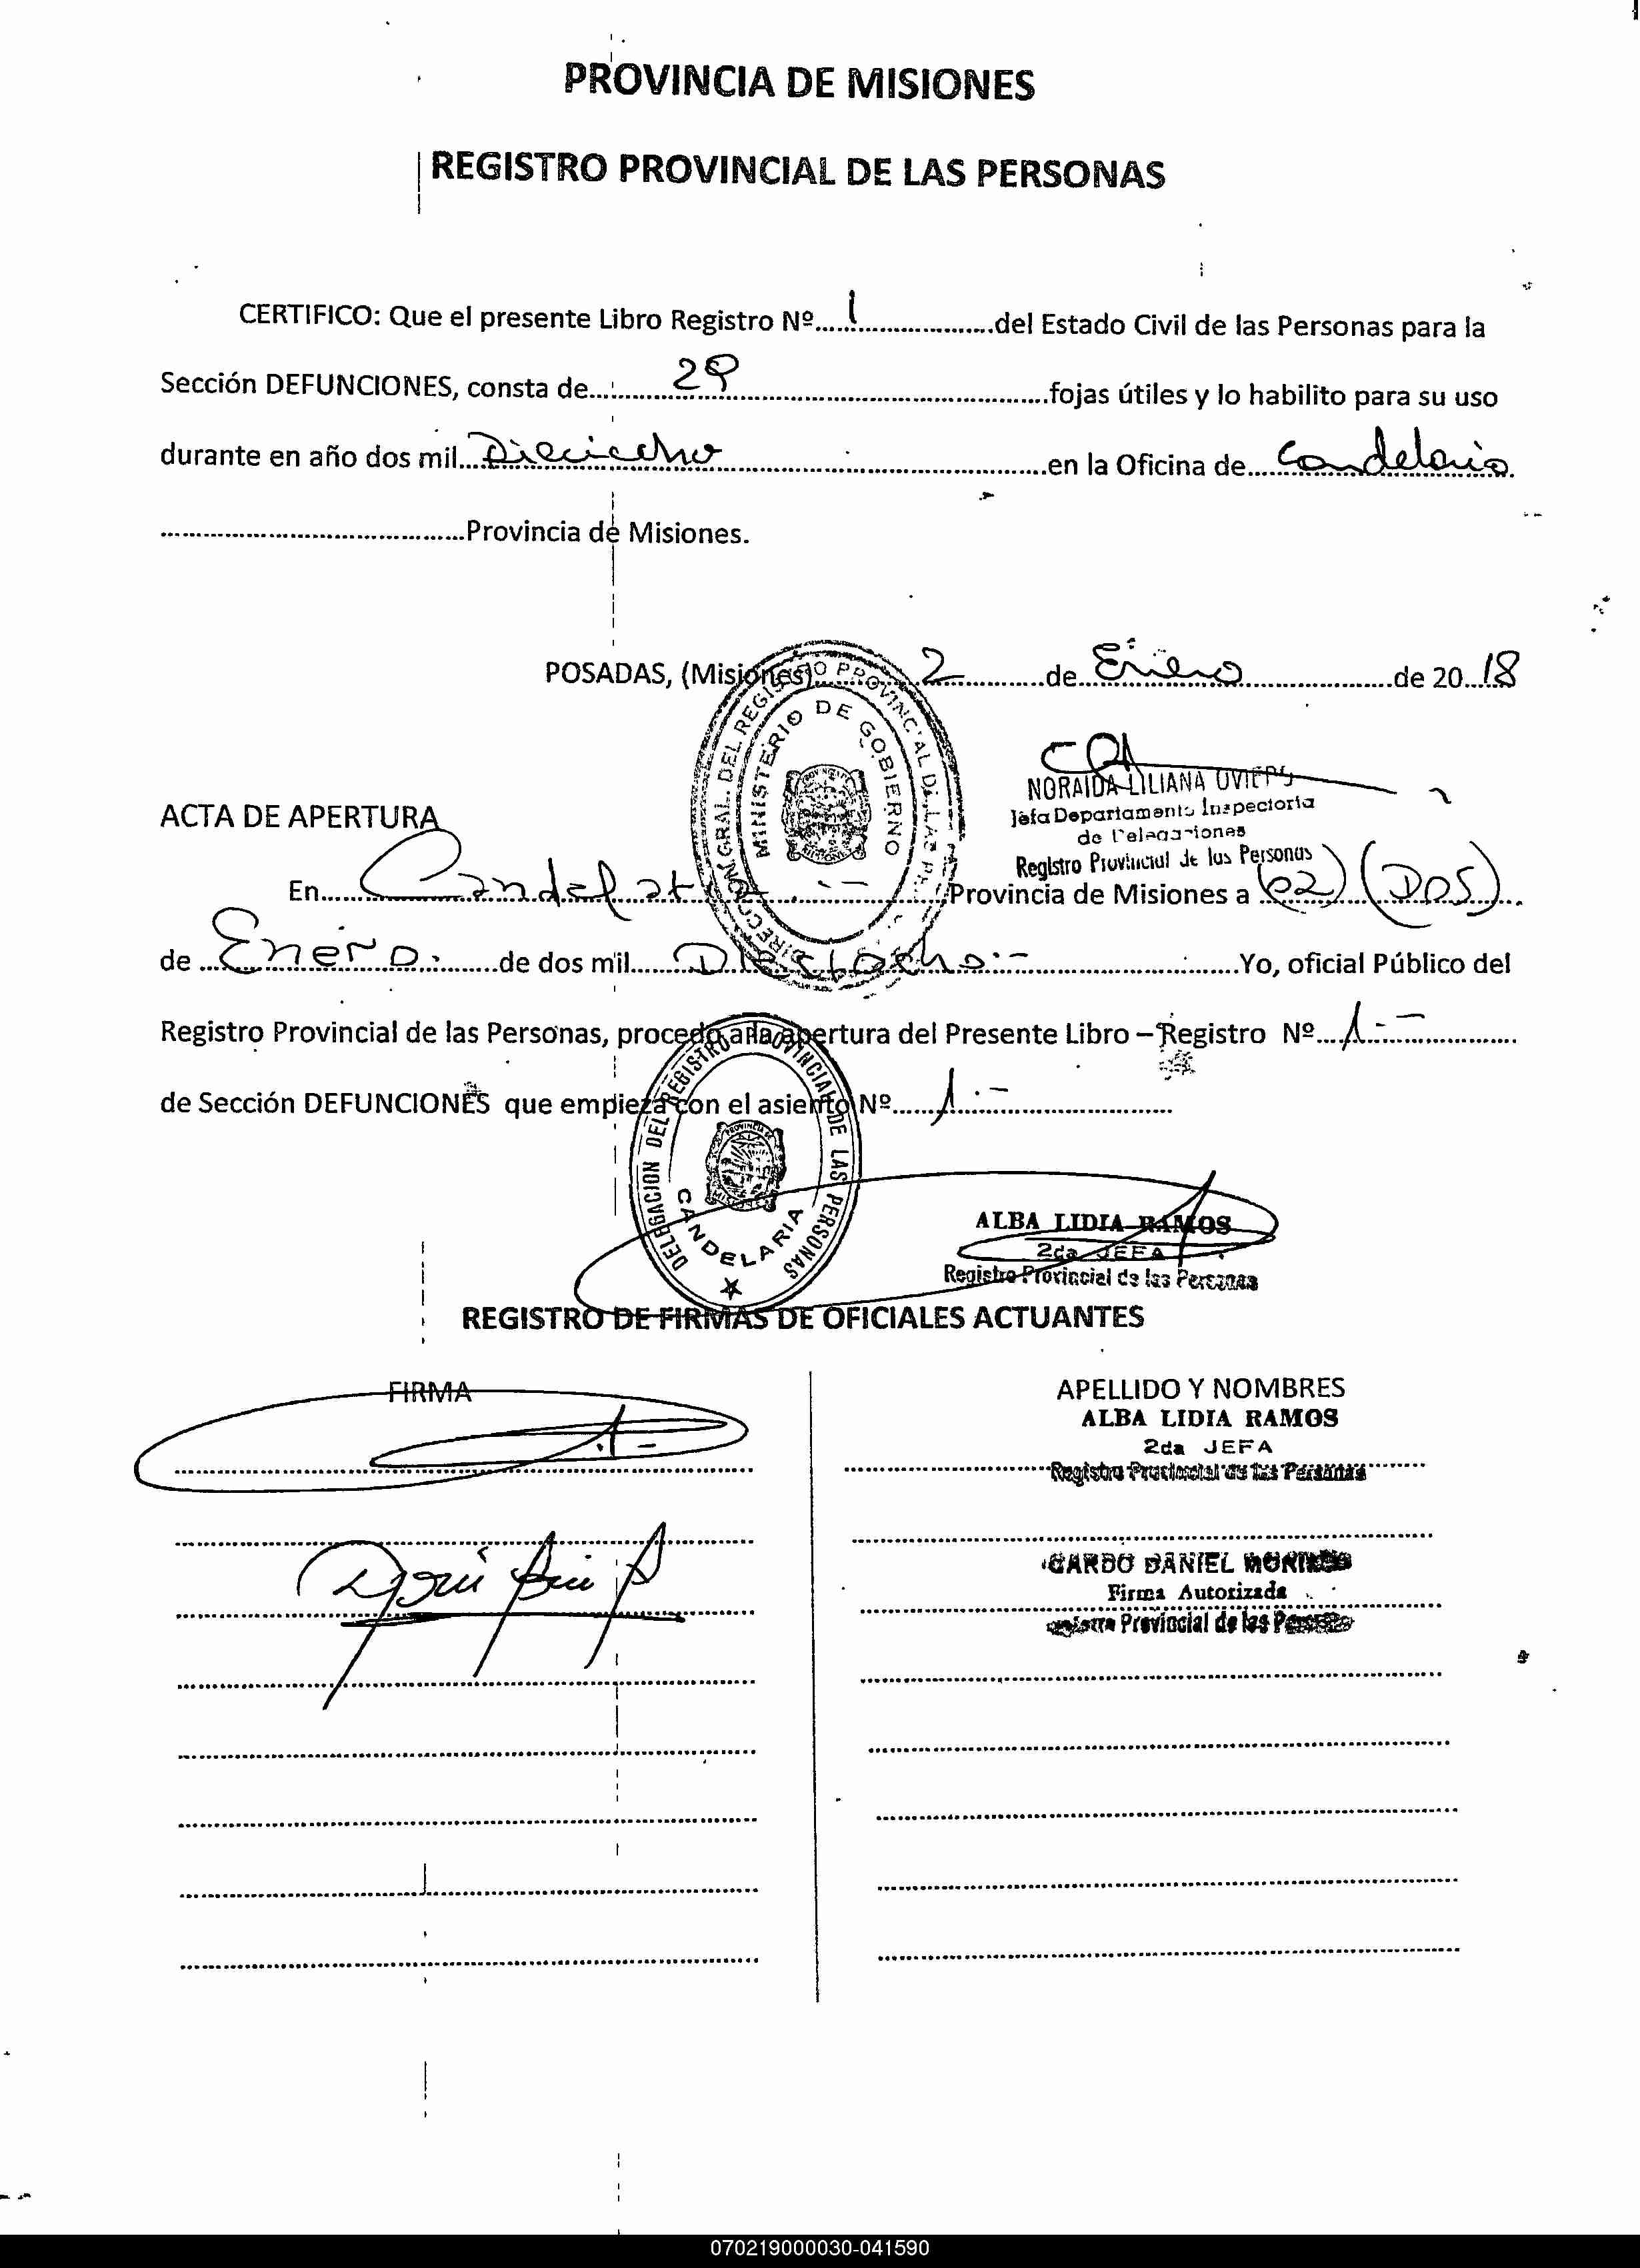 PROVINCIA DE MISIONES
REGISTRO PROVINCIAL DE LAS PERSONAS
CERTIFICO: Que el presente Libro Registro Nº.....1.....del Estado Civil de las Personas para la
Sección DEFUNCIONES, consta de.....29.....fojas útiles y lo habilito para su uso
durante en año dos mil.....Dieciocho.....en la Oficina de.....Candelaria.
.....Provincia de Misiones.
POSADAS, (Misiones).....2.....de.....Enero.....de 20..18
DIRECCION GRAL. DEL REGISTRO PROVINCIAL DE LAS
MINISTERIO DE GOBIERNO
NORAIDA LILIANA
Jefa Departamento Inspectoria
de Delegaciones
Registro Provincial de las Personas
ACTA DE APERTURA
En.....Candelaria.-.....Provincia de Misiones a (02) (DOS)
de.....Enero.....de dos mil.....Dieciocho.-.....Yo, oficial Público del
Registro Provincial de las Personas, procedo a la apertura del Presente Libro – Registro Nº....1.-.....
de Sección DEFUNCIONES que empieza con el asiento Nº.....1.-.....
DELEGACION DEL REGISTRO PROVINCIAL DE LAS PERSONAS
CANDELARIA
ALBA LIDIA RAMOS
2da JEFA
Registro Provincial de las Personas
REGISTRO DE FIRMAS DE OFICIALES ACTUANTES
FIRMA
APELLIDO Y NOMBRES
ALBA LIDIA RAMOS
2da JEFA
Registro Provincial de las Personas
DANIEL
Firma Autorizada
Provincial de las
070219000030-041590